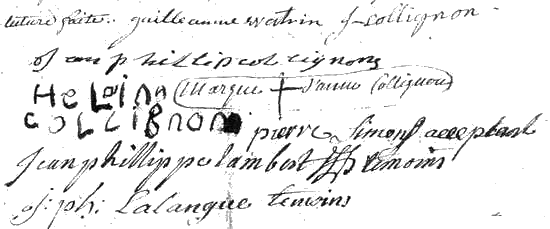 lecture faite. guilleaume watrin J-collignon
Jean phillip collignong
HeLoina Marque + Anne Collignon
COLLIGNON pierre Simons acceptant
Jean phillippe lambert temoins
J: ph: Lalangue temoins